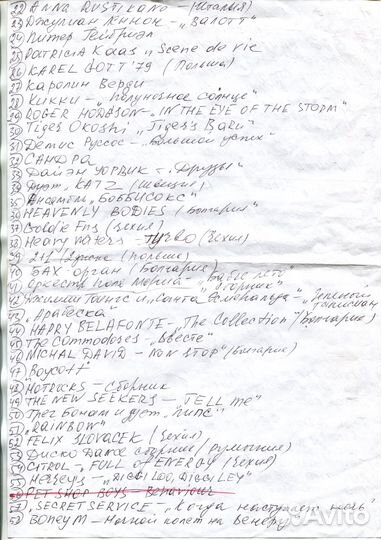 22) ANNA RUSTIKONO - (Италия)
23) Джулиан Леннон - „Валотт"
24) Питер Гейбриэл
25) PATRICIA Kaas „Scene de vie
26) KAREL GOTT '79 (Польша)
27) Каролин Верди
28) Кикки - „Полуночное солнце"
29) ROGER HODGSON - „IN THE EYE OF THE STORM"
30) Tiger Okoshi „Tiger's Baku"
31) Демис Руссос - „Большой успех"
32) САНДРА
33) Дайэн Уорвик - „Друзья"
34) Дуэт „KATZ" (Швеция)
35) Ансамбль „БОББИСОКС"
36) HEAVENLY BODIES (Болгария)
37) Gold'e Ens (Чехия)
38) Heavy waters - Turbo (Чехия)
39) 2+1 (Польша)
40) БАХ - орган (Болгария)
41) Оркестр Поля Мориа - „Бабье лето"
42) Джимми Гиингс и „Санта Эсмеральда" - „Зеленый талисман"
43) „Арабеска"
44) HARRY BELAFONTE - „The Collection" (Болгария)
45) The Commodores - „Вместе"
46) MICHAL DAVID - „NON STOP" (Болгария)
47) Boycott
48) HOTROCKS - Сборник
49) THE NEW SEEKERS - „TELL me"
50) Грег Бонам и дуэт „Липс"
51) „RAINBOW"
52) FELIX SLOVACEK (Чехия)
53) Диско Dance сборник (Румыния)
54) CITROL - „FULL of ENERGY" (Чехия)
55) Herreys - „DIGGI LOO, DIGGI LEY"
56) PET SHOP BOYS - Behaviour
57) „SECRET SERVICE - „Когда наступает ночь"
58) BONEY M - Ночной полет на Венеру
Avito